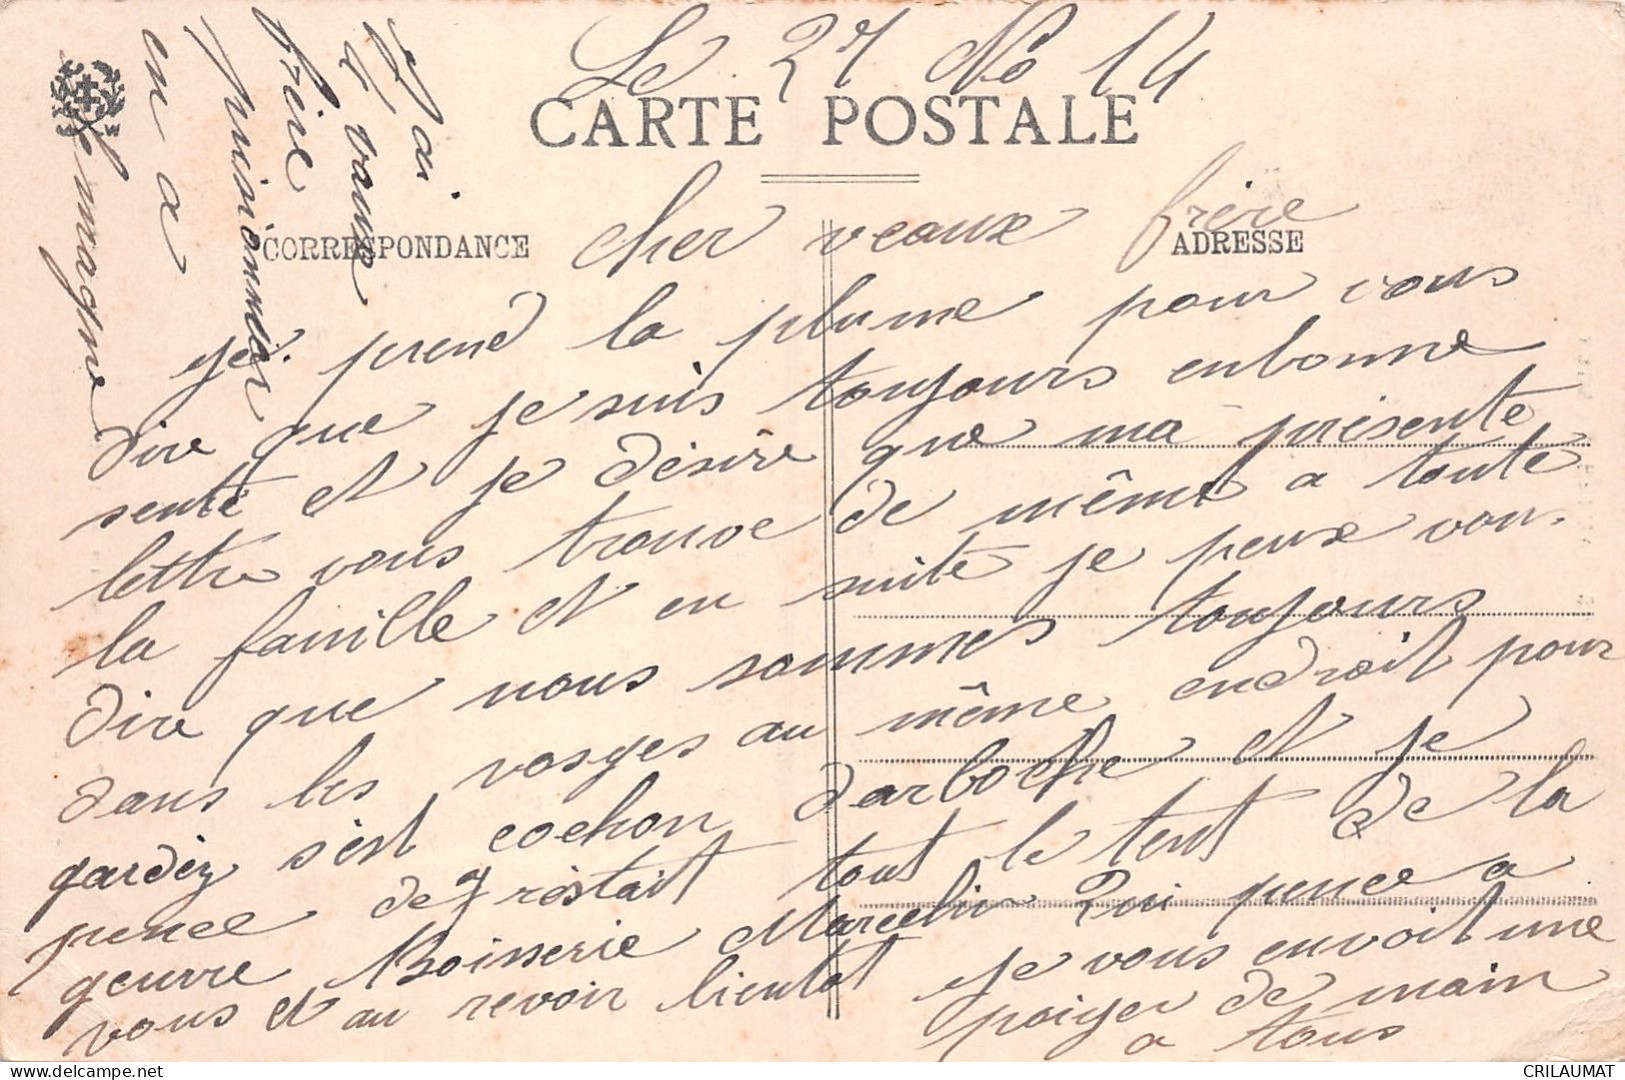 Le 27 No 14
CARTE POSTALE
CORRESPONDANCE
ADRESSE
cher veaux frère
je prend la plume pour vous
dire que je suis toujours enbonne
senté et je désire que ma présente
lettre vous trouve de même a toute
la famille et en suite je peux vou.
dire que nous sommes toujours
dans les vosges au même endroit pour
gardéz s'est cochon darboche et je
pence de réstait tout le tent de la
geurre Boisserie Marcelin Qui pence a
vous et au revoir bientot je vous envoit une
poiger de main
a tous
J'ai
veaux
frère
en a
CRILAUMAT